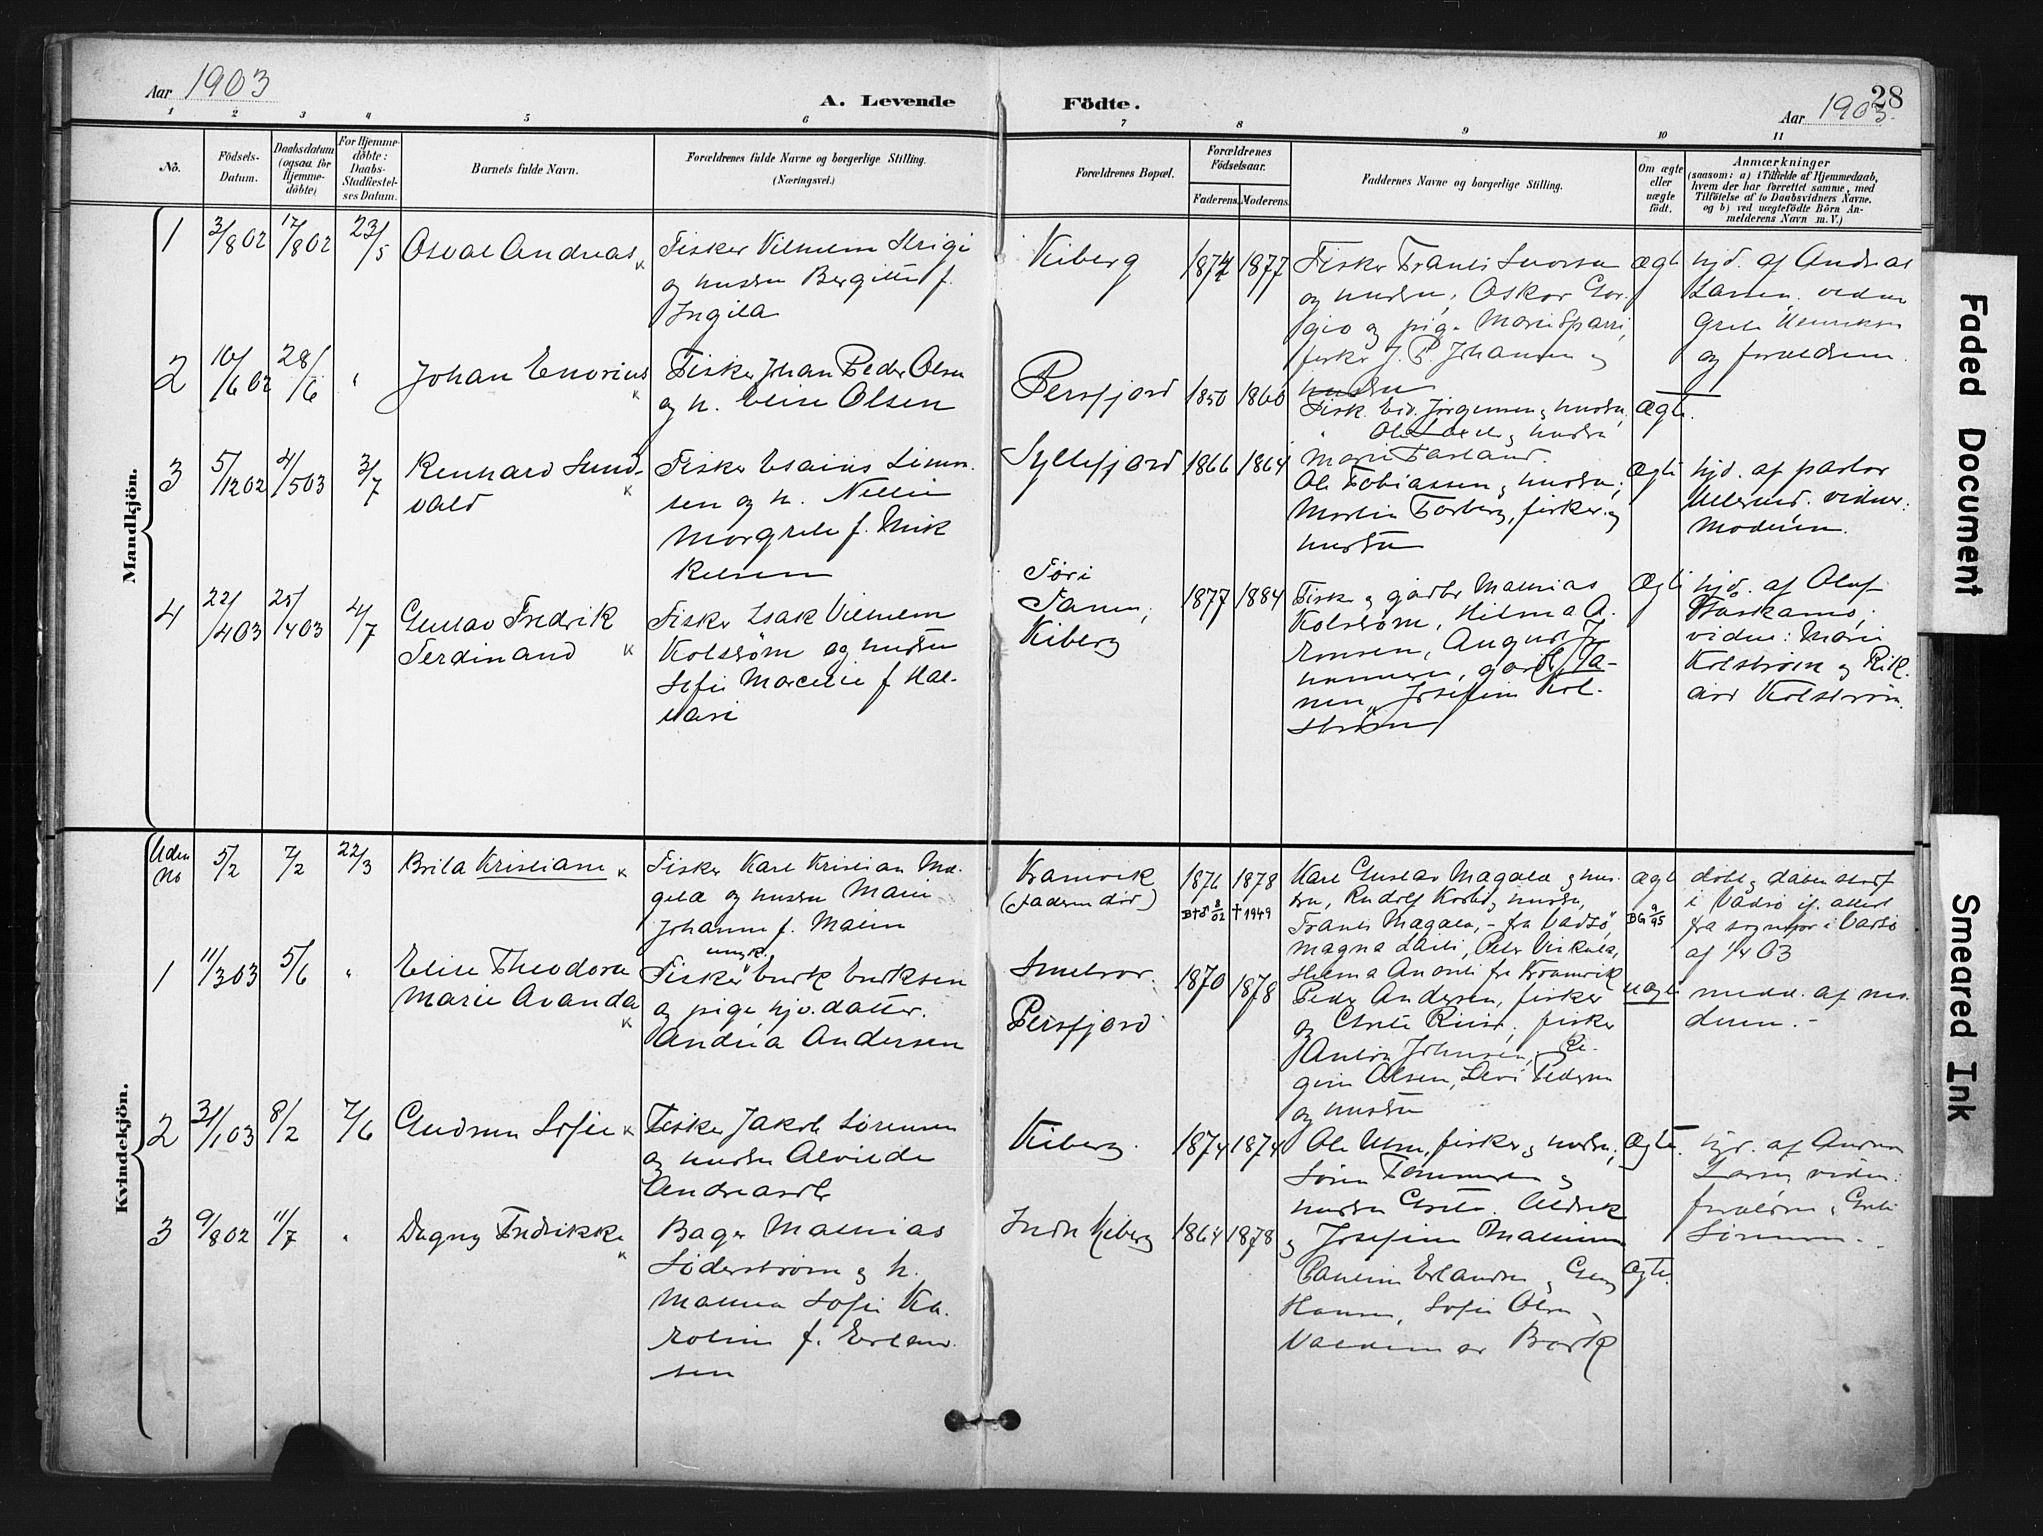 Aar 1903
A. Levende Födte.
28
Aar 1903.
1 2 3 4 5 6 7 8 9 10 11
No.
Födsels-Datum.
Daabsdatum (ogsaa for Hjemme-döbte)
For Hjemme-döbte: Daabs-Stadfæstel-ses Datum.
Barnets fulde Navn.
Forældrenes fulde Navne og borgerlige Stilling.
(Næringsvei.)
Forældrenes Bopæl.
Forældrenes Födselsaar.
Faderens. Moderens.
Faddernes Navne og borgerlige Stilling.
Om ægte eller uægte födt.
Anmærkninger
(saasom: a) i Tilfælde af Hjemmedaab,
hvem der har forrettet samme, med
Tilföielse af to Daabsvidners Navne.
og b) ved uægtefödte Börn An-
melderens Navn m. V.)
Mandkjön.
1 3/8 02 17/8 02 23/5
Osval Andreas
Fisker Vilhelm Strigi
og hustru Bergitte f.
Ingila
Kiberg
1874 1877
og hustru, Oskar
og pige Marie Sparri,
fisker J. P. Johansen og
hustru
Ægte
hjd. af Andreas
Larsen, vidner
og forældrene.
2 10/6 02 28/6 "
Johan Enorius
Fisker Johan Peder Olsen
og h. Elise Olsen
Persfjord
1850 1860
Fisk. Edv. Jörgensen og hustru,
Marie Farland.
Ægte.
3 5/12 02 21/5 03 3/7
Renhard Sund-
vald
Fisker Esaias Simon-
sen og h. Nellie
Margrete f. Mik
kelsen
Syltefjord
1866 1864
Ole Tobiassen og hustru;
Martin Torberg, fisker og
hustru
Ægte
hjd. af pastor
vidner:
Moderen.
4 22/4 03 25/4 03 4/7
Gustav Fredrik
Ferdinand
Fisker Isak Vilhelm
Kolström og hustru
Sofie Marcelie f. Hal-
vari
Kiberg
1877 1884
Fisker og gårdbr Mathias
Kolström, Hilma A.
Josefine Kol-
ström
Ægte
hjd. af Oluf
vidner: Marie
Kolström og Rik-
ard Kolström.
Kvindekjön.
Uden No 5/2 7/2 22/3
Brita Kristiane
Fisker Karl Kristian Ma-
gela og hustru Marie
Johanne f. Malin
Kramvik
(faderen död)
1876 1878
B†♂ 8/02 † 1949
Karl Gustav Magala og hus-
tru, Rudolf
Frants Magala, - fra Vadsö,
Hilma Ananti fra Kramvik
Ægte
BG 9/95
döbt og dåben stadf
i Vadsö if. attest
fra sognepr i Vadsö
af 1/4 03
1 11/3 03 5/6 "
Elise Theodora
Marie Avanda
ungk.
Fisker Erik Eriksen
og pige hjv. datter.
Andrea Andersen
Smelror.
Persfjord
1870 1878
Peder Andersen, fisker
og Grete fisker
Anton Johnsen, Re-
gine Olsen, Levi Pedersen
og hustru
uægte
medd. af mo-
deren. -
2 31/1 03 8/2 7/6
Gudrun Sofie
Fisker Jakob Sörensen
og hustru Alvilde
Andreasdtr
Kiberg.
1874 1874
Ole Olsen, fisker og hustru;
Sören Tommesen og
hustru Grete. Aldrik
og Josefine
Ægte.
hjd. af Andreas
Larsen vidner:
forældre og Grete
Sörensen.
3 9/8 02 11/7 "
Dagny Fredrikke
Bager Mathias
Söderström og h.
Malena Sofie Ka-
roline f. Erland-
sen
Indr Kiberg
1864 1878
Pauline Erlandsen og
Hansen, Sofie Olsen og
Valdemar Bark
Ægte.
Faded Document
Smeared Ink